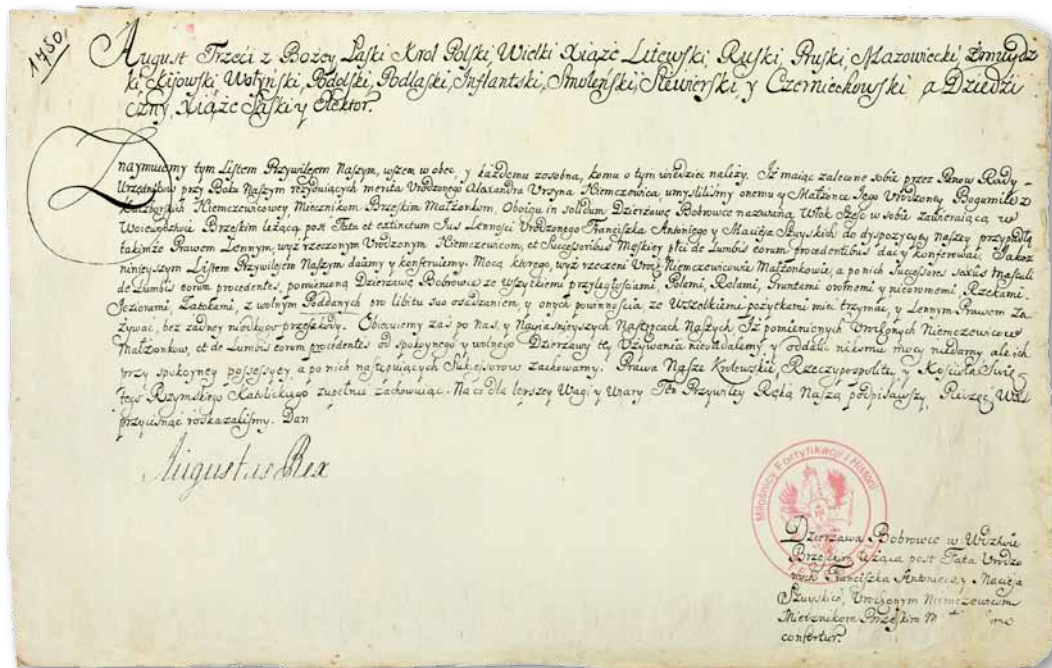 1750
August Trzeci z Bożey Łaski Krol Polski, Wielki Xiąże Litewski, Ruski, Pruski, Mazowiecki, Zmuydz
ki, Kijowski, Wołyński, Podolski, Podlaski, Inflantski, Smoleński, Siewierski, y Czerniechowski, a Dziedzi
czny, Xiąże Saski y Elektor.
Znaymuiemy tym Listem Przywileiem Naszym, wszem w obec, y każdemu zosobna, komu o tym wiedziec należy. Iż maiąc zalecone sobie przez Panow Rady
Urzędnikow przy Boku Naszym rezyduiących merita Urodzonego Alexandra Ursyna Niemcewicza, umyslilismy onemu y Małżonce Jego Urodzoney Bogumile z
Niemczewicowey, Miecznikom Brzeskim Małżonkom, Oboygu in solidum Dzierżawę Bobrowce nazwaną Włok Szesc w sobie zawieraiącą w
Woiewodztwie Brzeskim leżącą post Fata et extinctum Jus Lennosci Urodzonego Franciszka Antoniego y Macieja Szuyskich do dyspozycyi Naszey przypadłą
takimże Prawem Lennym, wyż rzeczonym Urodzonym Niemczewicom, et Successoribus Męskiey płci de Lumbis eorum procedentibus dać y konferować. Jakoż
ninieyszym Listem Przywileiem Naszym daiemy y konferuiemy. Mocą ktorego, wyż rzeczeni Urodz. Niemczewicowie Małżonkowie, a po nich Successores sexus masculi
de Lumbis eorum procedentes, pomienioną Dzierżawę Bobrowce ze wszytkiemi przyległościami, Polami, Rolami, Gruntami oromemi y nieoromemi, Rzekami
Jeziorami, Zatokami, z wolnym Poddanych pro libitu suo osadzaniem, y onych powinnością, ze Wszelkiemi pożytkami mieć trzymać, y Lennym Prawem za
żywać, bez żadney niczyiey przeszkody. Obiecuiemy zaś po Nas, y Nayiasnieyszych Następcach Naszych Iż pomienionych Urodzonych Niemczewicow
Małżonkow, et de Lumbis eorum procedentes od spokoynego y wolnego Dzierżawy tey Używania nieoddalemy, y oddalić nikomu mocy niedamy, ale ich
przy spokoyney possessyey, a po nich następuiących Sukcessorow zachowamy. Prawa Nasze Krolewskie, Rzeczypospolitey y Kościoła Swię
tego Rzymskiego Katolickiego zupełnie zachowuiąc. Na co dla lepszey Wagi y Wiary Ten Przywiley Ręką Naszą podpisawszy, Pieczęć W
przycisnąć roskazalismy. Dan
Augustus Rex
Miłośnicy Fortyfikacji i Historii
Dzierżawa Bobrowce w Wdztwie
Brzeskim leżąca post Fata Urodzo
nych Franciszka Antoniego, y Macieja
Szuyskich, Urodzonym Niemczewicom
Miecznikom Brzeskim
confertur.